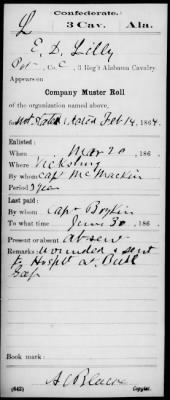 Confederate.
L 3 Cav. Ala.
E. D. Lilly
Pvt, Co. C, 3 Reg't Alabama Cavalry
Appears on
Company Muster Roll
of the organization named above,
for not dated, 186 .
Enlisted:
When Mar 20, 186 .
Where Vicksburg
By whom Capt McMackin
Period 3 year
Last paid:
By whom Capt Boykin
To what time June 30, 186 .
Present or absent absent
Remarks: wounded & sent
to Hospt at Bull
Gap
Book mark:
(642) Copyist.